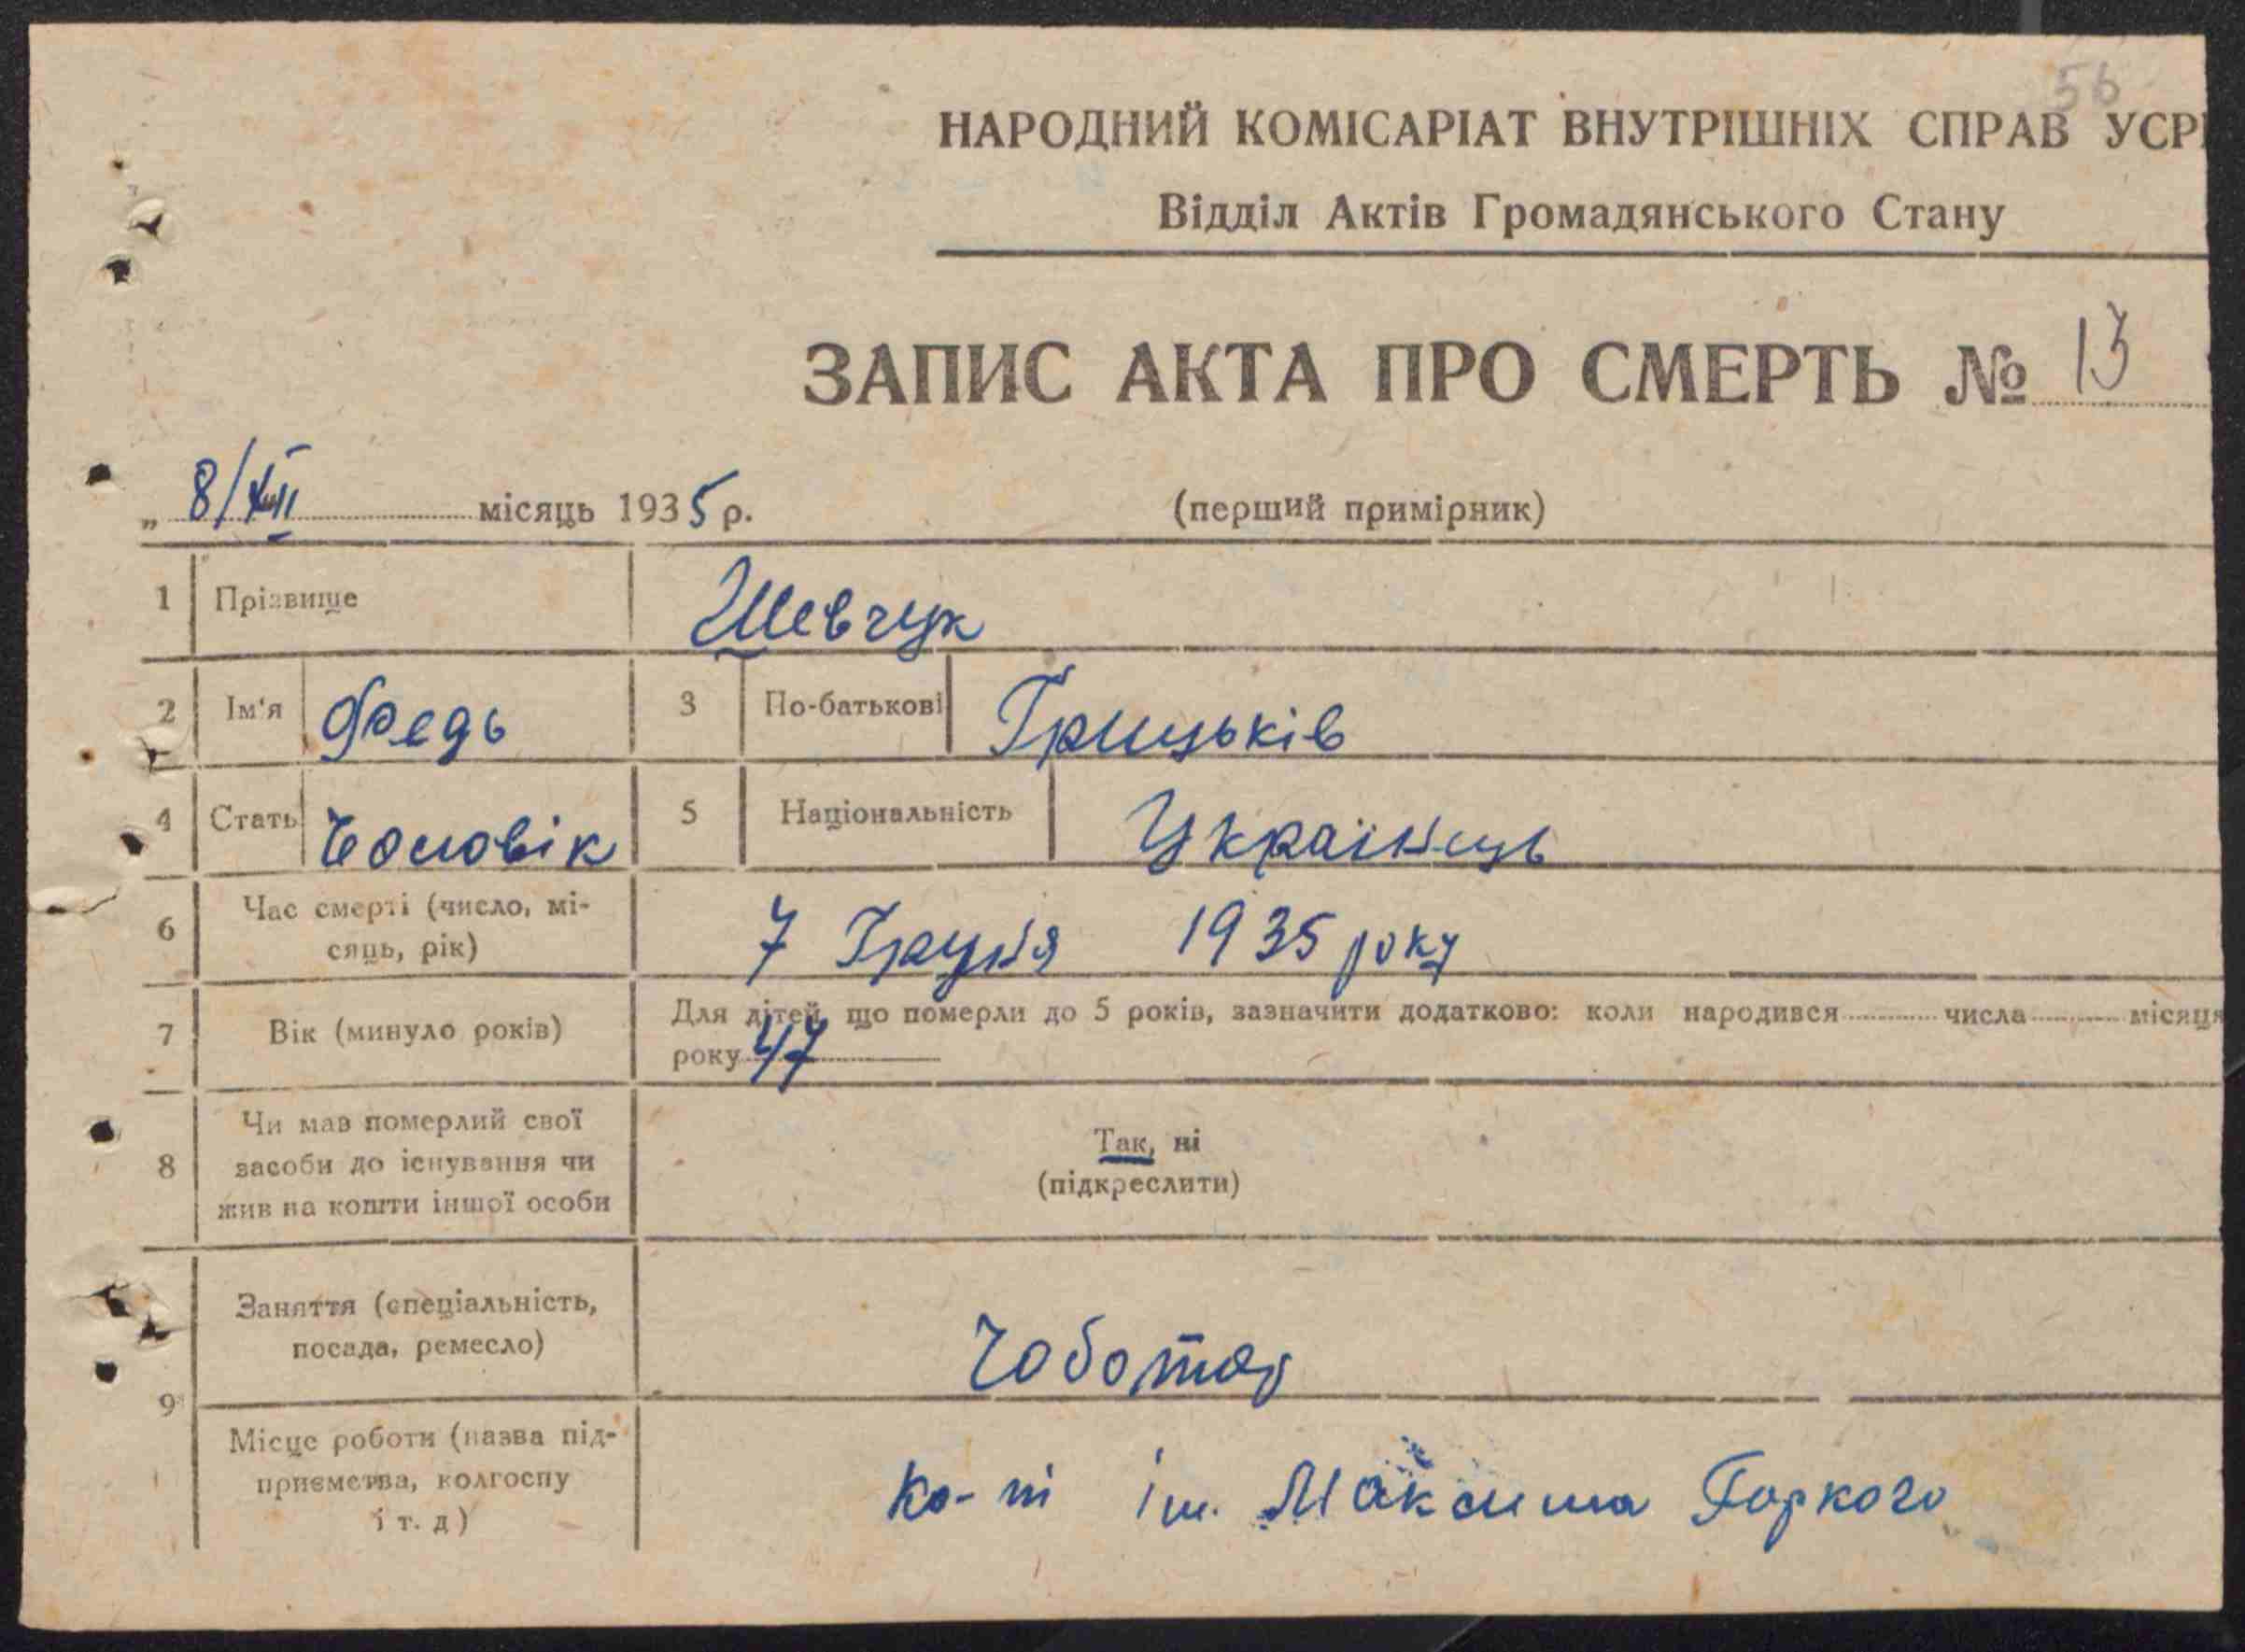 56
НАРОДНИЙ КОМІСАРІАТ ВНУТРІШНІХ СПРАВ УСР
Відділ Актів Громадянського Стану
ЗАПИС АКТА ПРО СМЕРТЬ № 13
„ 8/XII місяць 1935 р. (перший примірник)
1 Прізвище Шевчук
2 Ім'я Федь 3 По-батькові Грицьків
4 Стать Чоловік 5 Національність Українець
6 Час смерті (число, мі-
сяць, рік) 7 Грудня 1935 року
7 Вік (минуло років) Для дітей, що померли до 5 років, зазначити додатково: коли народився числа місяця
року 47
8 Чи мав померлий свої
засоби до існування чи
жив на кошти іншої особи
Так, ні
(підкреслити)
9 Заняття (спеціальність,
посада, ремесло) Чоботар
Місце роботи (назва під-
приємства, колгоспу
і т. д) Ко-п ім. Максима Горкого